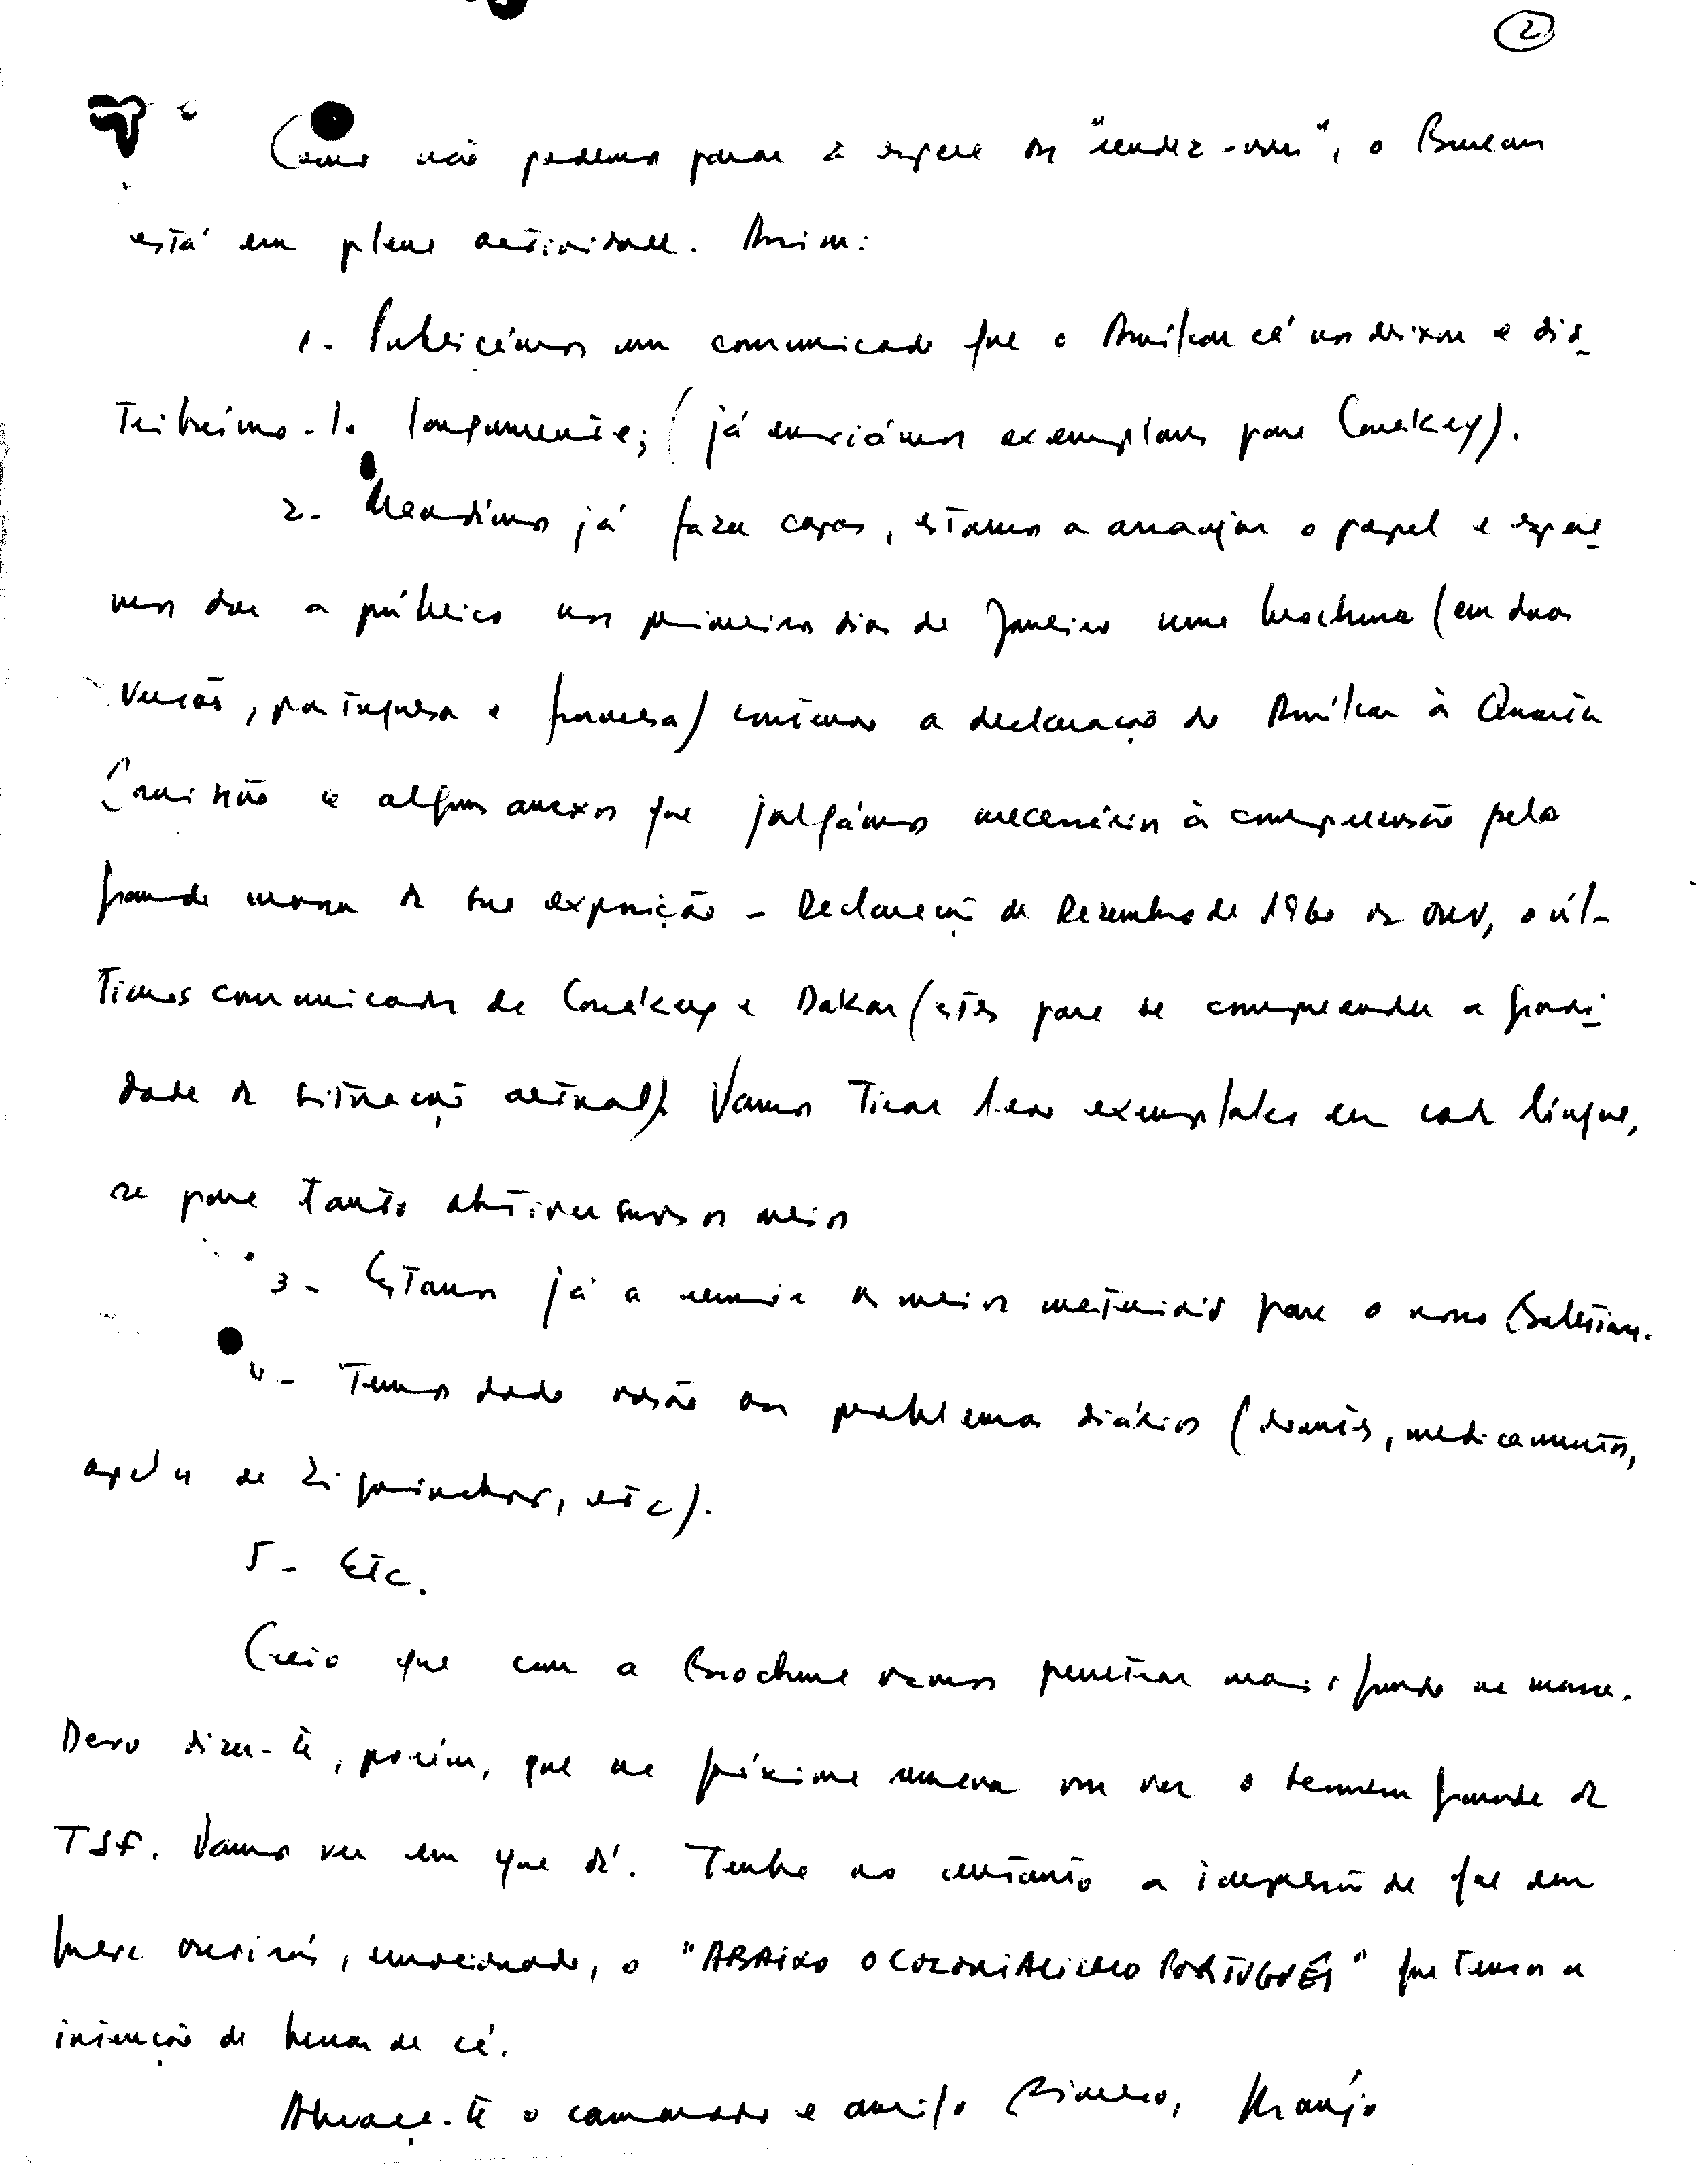 2
Como não podemos parar à espera do "rendez-vous", o Bureau
está em plena actividade. Assim:
1. Publicámos um comunicado que o Amílcar cá nos deixou e dis-
tribuímo-lo longamente; (já enviámos exemplares para Conákry).
2. Mandámos já fazer capas, estamos a arranjar o papel e espera-
mos dar a público nos primeiros dias de Janeiro uma brochura (em duas
versões, portuguesa e francesa) contendo a declaração do Amílcar à Quarta
Comissão e alguns anexos que julgámos necessários à compreensão pela
grande massa da sua exposição - Declaração de Dezembro de 1960 da ONU, o úl-
timos comunicados de Conákry e Dakar (estes para se compreender a gravi-
dade da situação actual). Vamos tirar exemplares em cada língua,
se para tanto obtivermos os meios
3 - Estamos já a reunir os meios materiais para o novo Boletim.
4 - Temos dado vasão aos problemas diários (doentes, medicamentos,
apelos de Ziguinchor, etc).
5 - Etc.
Creio que com a Brochura vamos penetrar mais fundo na massa.
Devo dizer-te, porém, que na próxima semana vou ver o homem grande da
TSF. Vamos ver em que dá. Tenho no entanto a impressão de que em
breve ouvirás, emocionado, o "ABAIXO O COLONIALISMO PORTUGUÊS" que temos a
intenção de berrar de cá.
Abraça-te o camarada e amigo sincero, Araújo